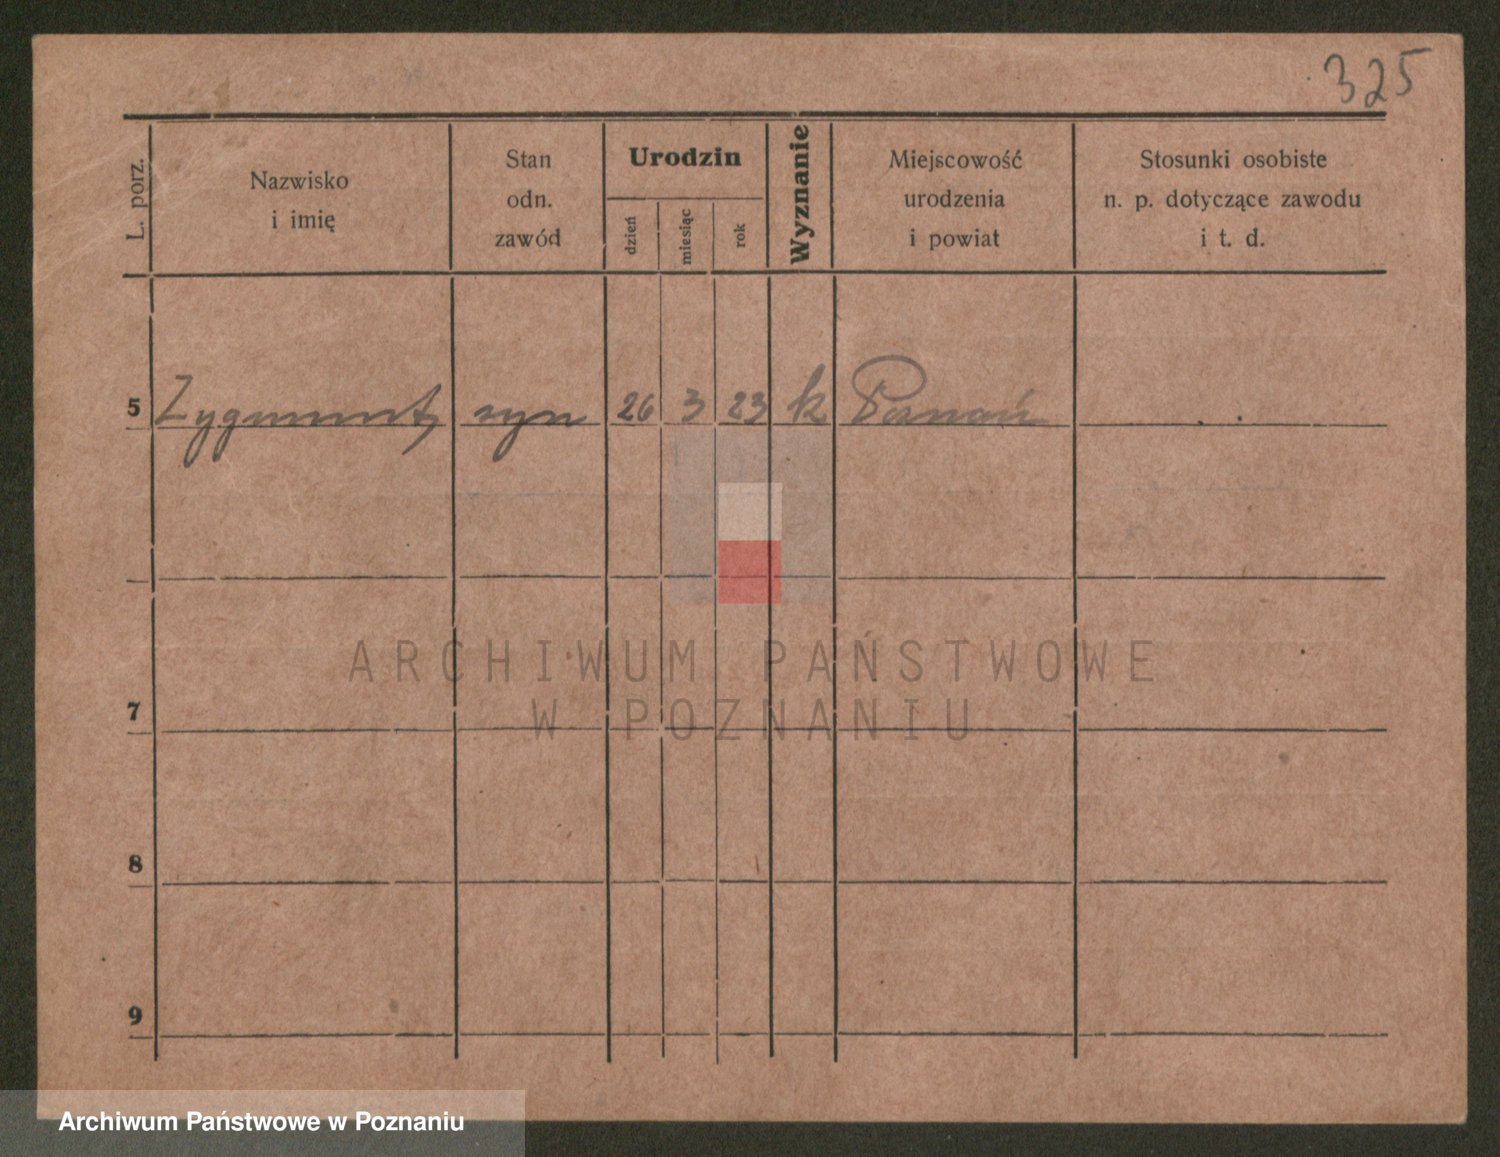 325
L. porz.
Nazwisko
i imię
Stan
odn.
zawód
Urodzin
dzień
miesiąc
rok
Wyznanie
Miejscowość
urodzenia
i powiat
Stosunki osobiste
n. p. dotyczące zawodu
i t. d.
5 Zygmunt syn 26 3 23 k Poznań
7
8
9
ARCHIWUM PAŃSTWOWE
W POZNANIU
Archiwum Państwowe w Poznaniu